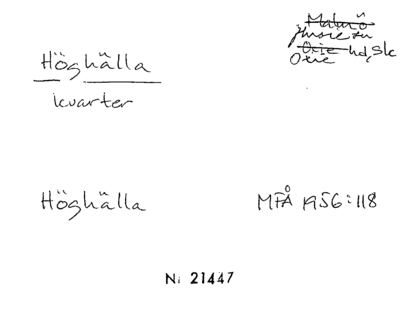 Höghälla
kvarter
Malmö
Oxie hd, Sk
Oxie
Höghälla
MFÅ 1956:118
Ni 21447